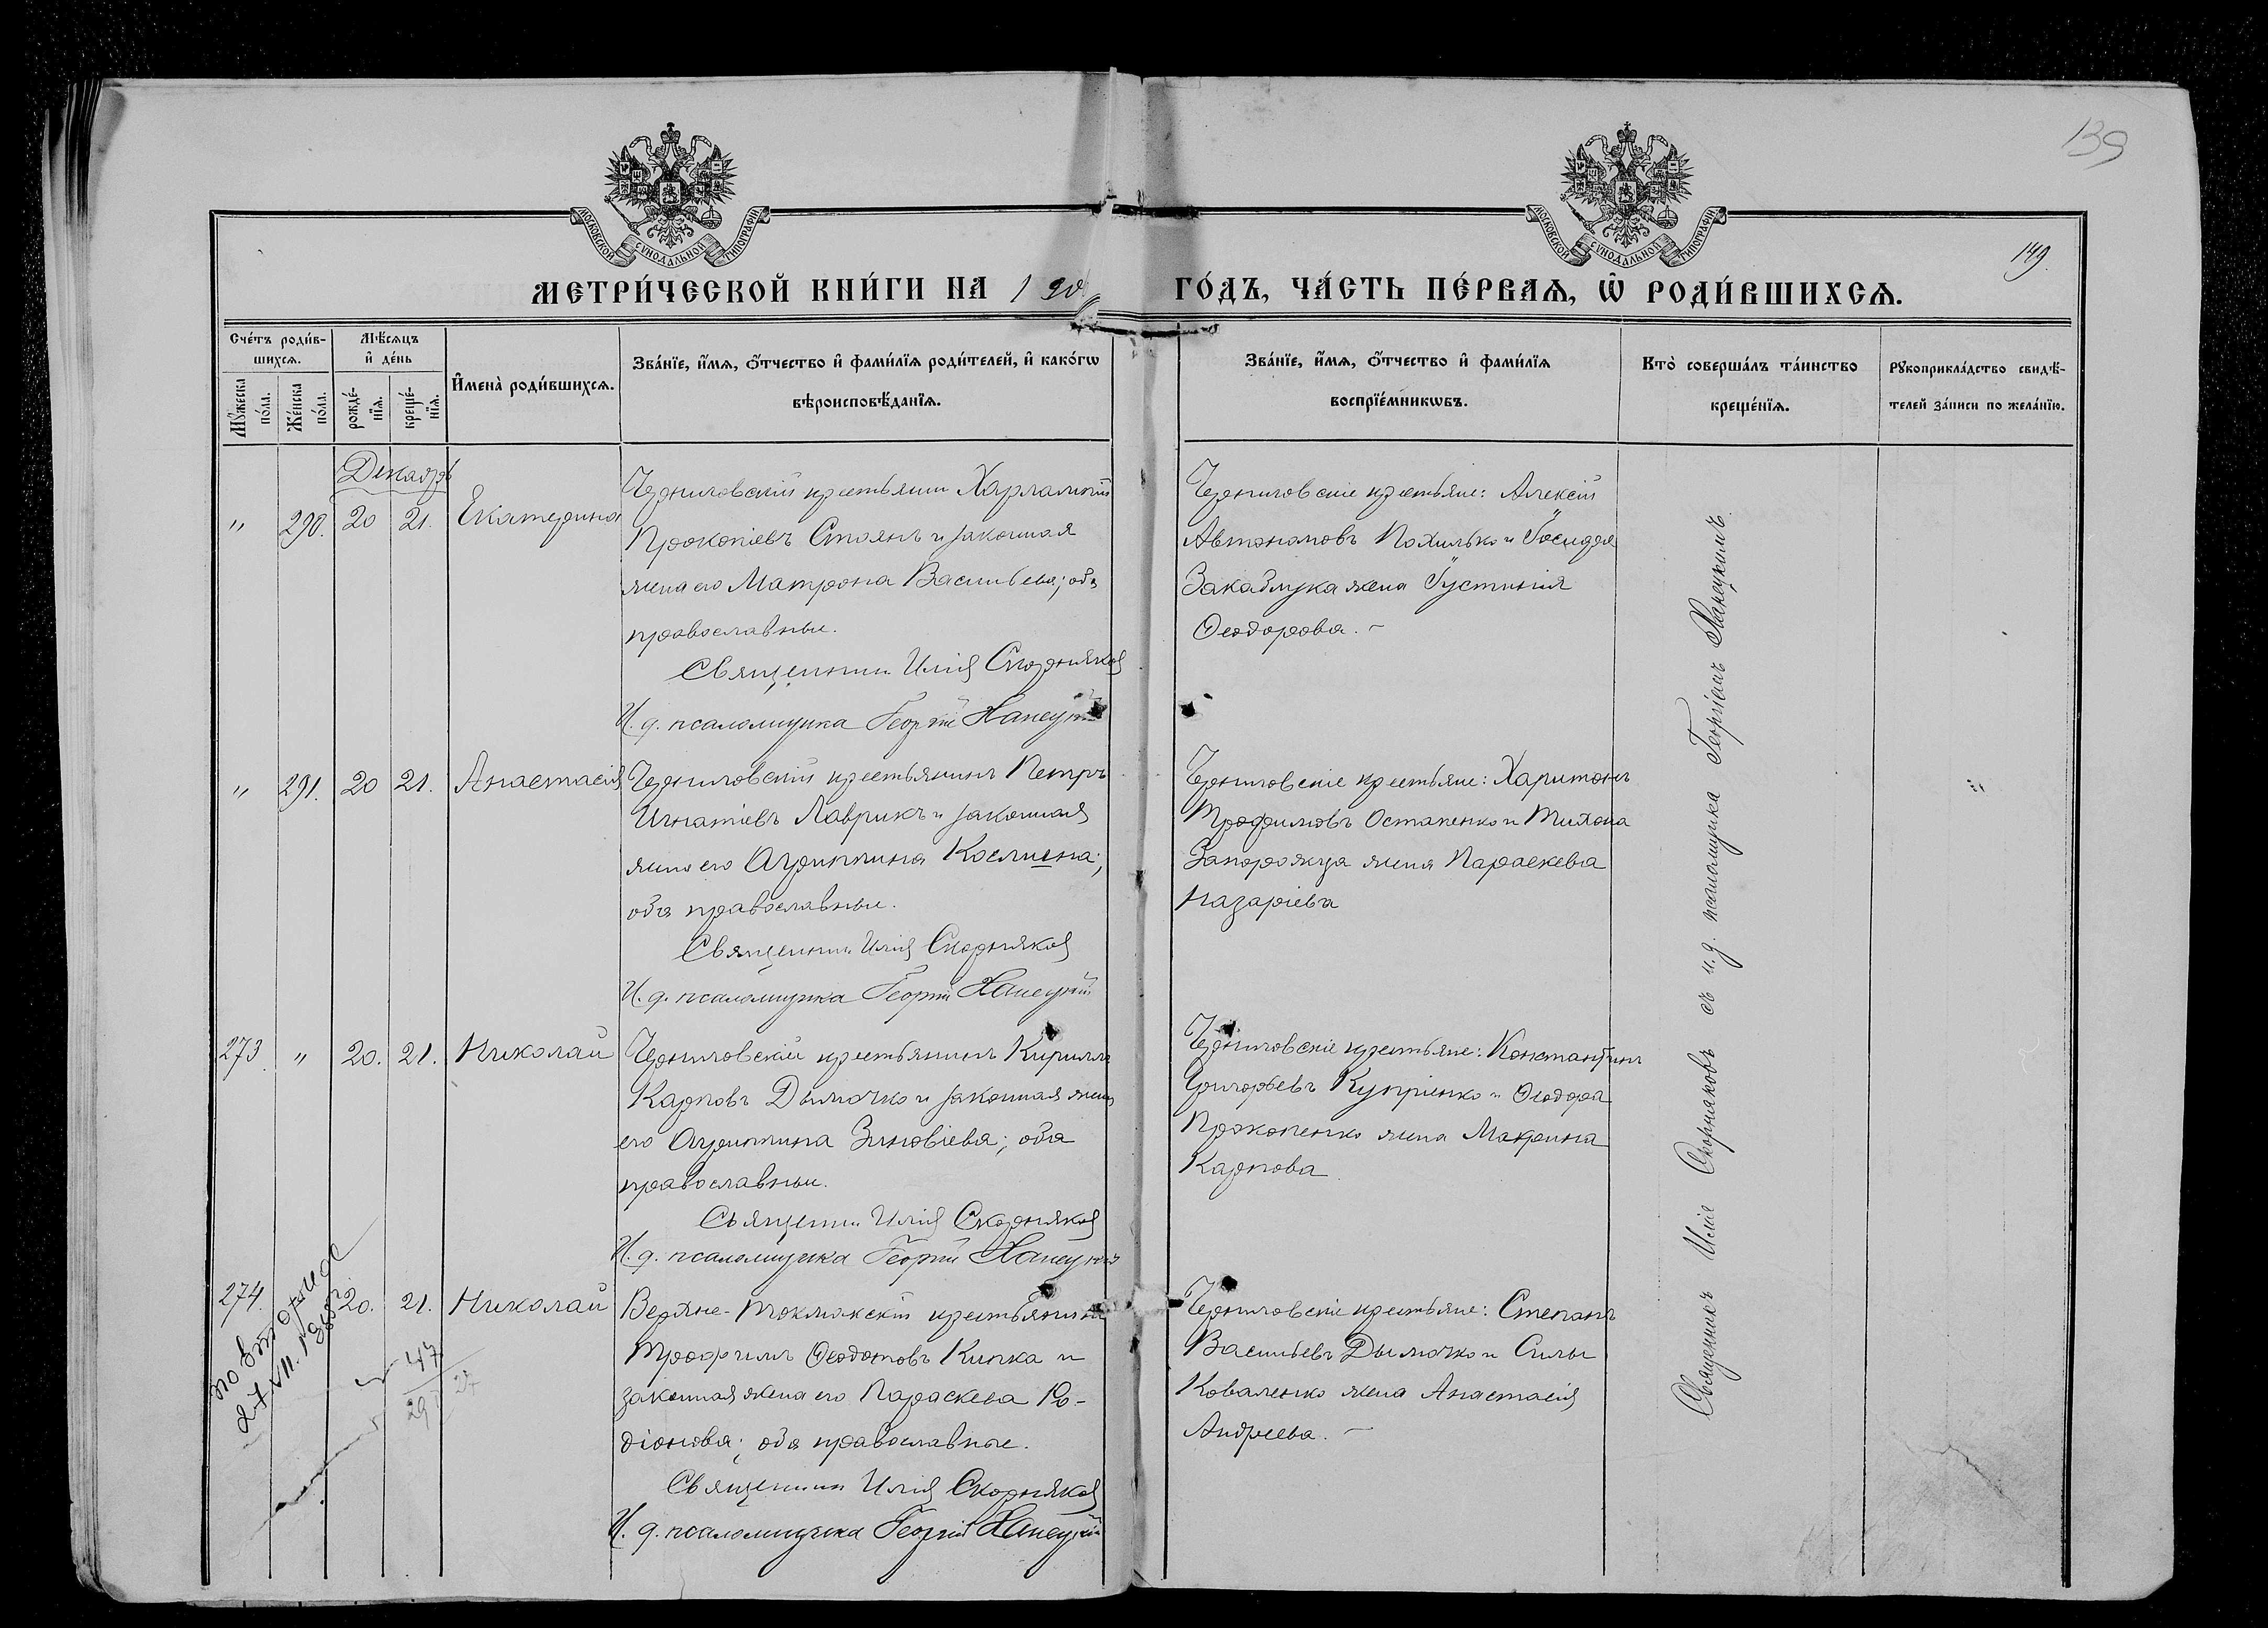 139
149.
МОСКОВСКОЙ СѴНОДАЛЬНОЙ ТИПОГРАФІИ
МОСКОВСКОЙ СѴНОДАЛЬНОЙ ТИПОГРАФІИ
МЕТРИ́ЧЕСКОЙ КНИ́ГИ НА 190 ГО́ДЪ, ЧА́СТЬ ПЕ́РВАѦ, Ѡ҆ РОДИ́ВШИХСѦ.
Сче́тъ роди́в-
шихсѧ.
Мꙋ́жеска
по́ла.
Же́нска
по́ла.
Мѣ́сѧцъ
и҆ де́нь
рожде́-
нїѧ.
креще́-
нїѧ.
И҆мена̀ роди́вшихсѧ.
Зва́нїе, и҆́мѧ, ѻ҆́тчество и҆ фами́лїѧ роди́телей, и҆ како́гѡ
вѣроисповѣ́данїѧ.
Зва́нїе, и҆́мѧ, ѻ҆́тчество и҆ фами́лїѧ
воспрїе́мникѡвъ.
Кто̀ соверша́лъ та́инство
креще́нїѧ.
Рꙋкоприкла́дство свидѣ́-
телей за́писи по жела́нїю.
Декабрь
" 290. 20 21. Екатерина
Черниговскій крестьянин Харлампій
Прокопіевъ Стоянъ и законная
жена его Матрона Васильева; оба
православные.
Священник Илія Скорняков
И. д. псаломщика Георгій Ханецкій
Черниговскіе крестьяне: Алексій
Автономовъ Похилько и Ісидора
Закаблука жена Іустинія
Ѳеодорова. –
" 291. 20 21. Анастасія
Черниговскій крестьянинъ Петръ
Игнатіевъ Лаврикъ и законная
жена его Агриппина Космина;
оба православные.
Священник Илія Скорняков
И. д. псаломщика Георгій Ханецкій
Черниговскіе крестьяне: Харитонъ
Трофимовъ Остапенко и Тихона
Запорожца жена Параскева
Назаріева
273 " 20. 21. Николай
Черниговскій крестьянинъ Кириллъ
Карповъ Дымочко и законная жена
его Агриппина Зиновіева; оба
православные.
Священник Илія Скорняков
И. д. псаломщика Георгій Ханецкій
Черниговскіе крестьяне: Константинъ
Григорьевъ Купріенко и Ѳеодора
Прокопенко жена Макрина
Карпова
274. 20. 21. Николай
Верхне-Токмакскій крестьянинъ
Трофимъ Ѳеодотовъ Кипка и
законная жена его Параскева Ро-
діонова; оба православные.
Священник Илія Скорняков
И. д. псаломщика Георгій Ханецкій
Черниговскіе крестьяне: Степанъ
Васильевъ Дымочко и Силы
Коваленко жена Анастасія
Андреева. –
Священникъ Илія Скорняковъ съ и. д. псаломщика Георгіемъ Ханецкимъ.
по вторые
27 VII.
47
29 27